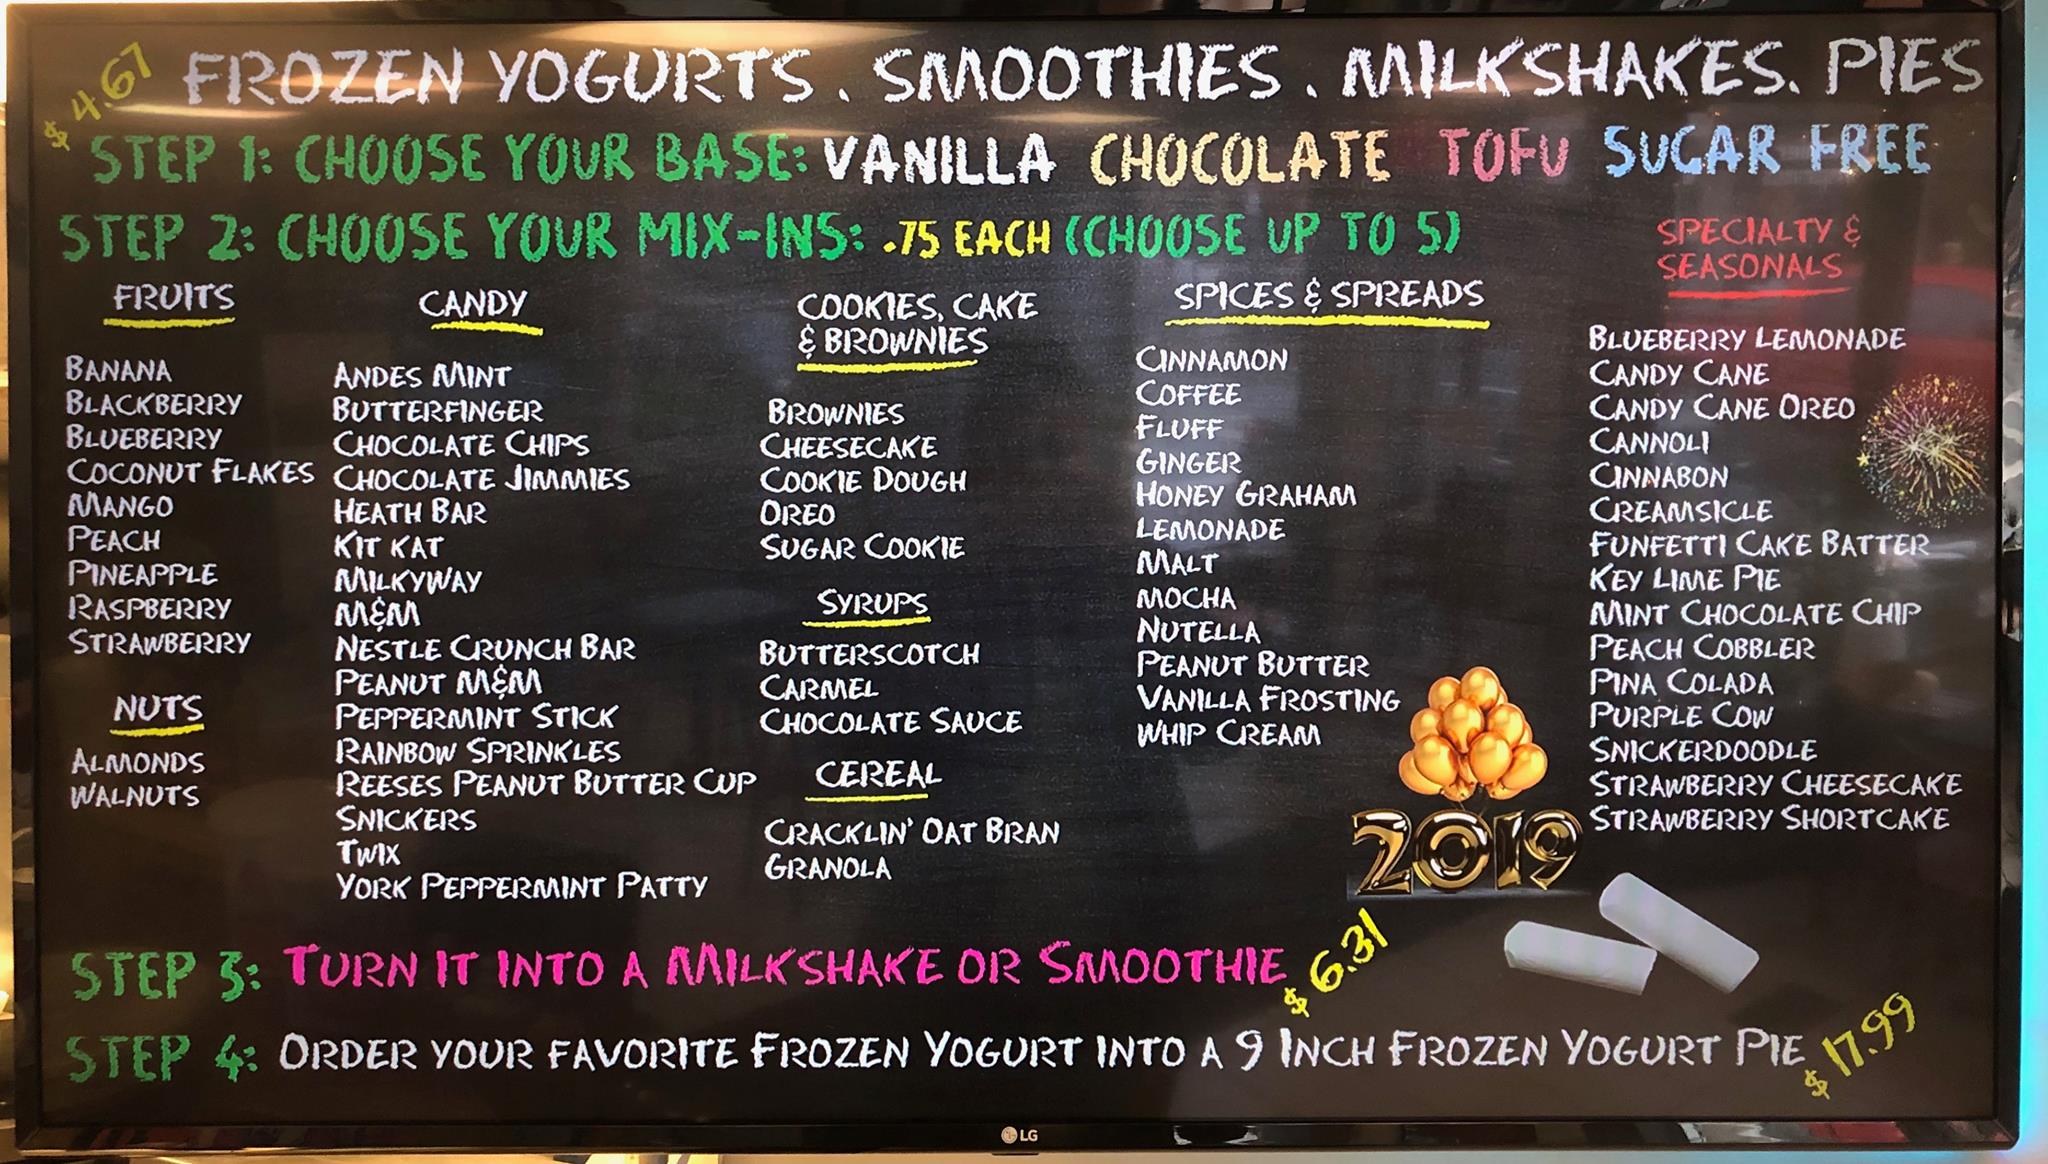 $4.67
FROZEN YOGURTS. SMOOTHIES. MILKSHAKES. PIES
STEP 1: CHOOSE YOUR BASE: VANILLA CHOCOLATE TOFU SUGAR FREE
STEP 2: CHOOSE YOUR MIX-INS: .75 EACH (CHOOSE UP TO 5)
FRUITS
BANANA
BLACKBERRY
BLUEBERRY
COCONUT FLAKES
MANGO
PEACH
PINEAPPLE
RASPBERRY
STRAWBERRY
NUTS
ALMONDS
WALNUTS
CANDY
ANDES MINT
BUTTERFINGER
CHOCOLATE CHIPS
CHOCOLATE JIMMIES
HEATH BAR
KIT KAT
MILKYWAY
M&M
NESTLE CRUNCH BAR
PEANUT M&M
PEPPERMINT STICK
RAINBOW SPRINKLES
REESES PEANUT BUTTER CUP
SNICKERS
TWIX
YORK PEPPERMINT PATTY
COOKIES, CAKE
& BROWNIES
BROWNIES
CHEESECAKE
COOKIE DOUGH
OREO
SUGAR COOKIE
SYRUPS
BUTTERSCOTCH
CARMEL
CHOCOLATE SAUCE
CEREAL
CRACKLIN' OAT BRAN
GRANOLA
SPICES & SPREADS
CINNAMON
COFFEE
FLUFF
GINGER
HONEY GRAHAM
LEMONADE
MALT
MOCHA
NUTELLA
PEANUT BUTTER
VANILLA FROSTING
WHIP CREAM
2019
SPECIALTY &
SEASONALS
BLUEBERRY LEMONADE
CANDY CANE
CANDY CANE OREO
CANNOLI
CINNABON
CREAMSICLE
FUNFETTI CAKE BATTER
KEY LIME PIE
MINT CHOCOLATE CHIP
PEACH COBBLER
PINA COLADA
PURPLE COW
SNICKERDOODLE
STRAWBERRY CHEESECAKE
STRAWBERRY SHORTCAKE
STEP 3: TURN IT INTO A MILKSHAKE OR SMOOTHIE $6.31
STEP 4: ORDER YOUR FAVORITE FROZEN YOGURT INTO A 9 INCH FROZEN YOGURT PIE $17.99
LG